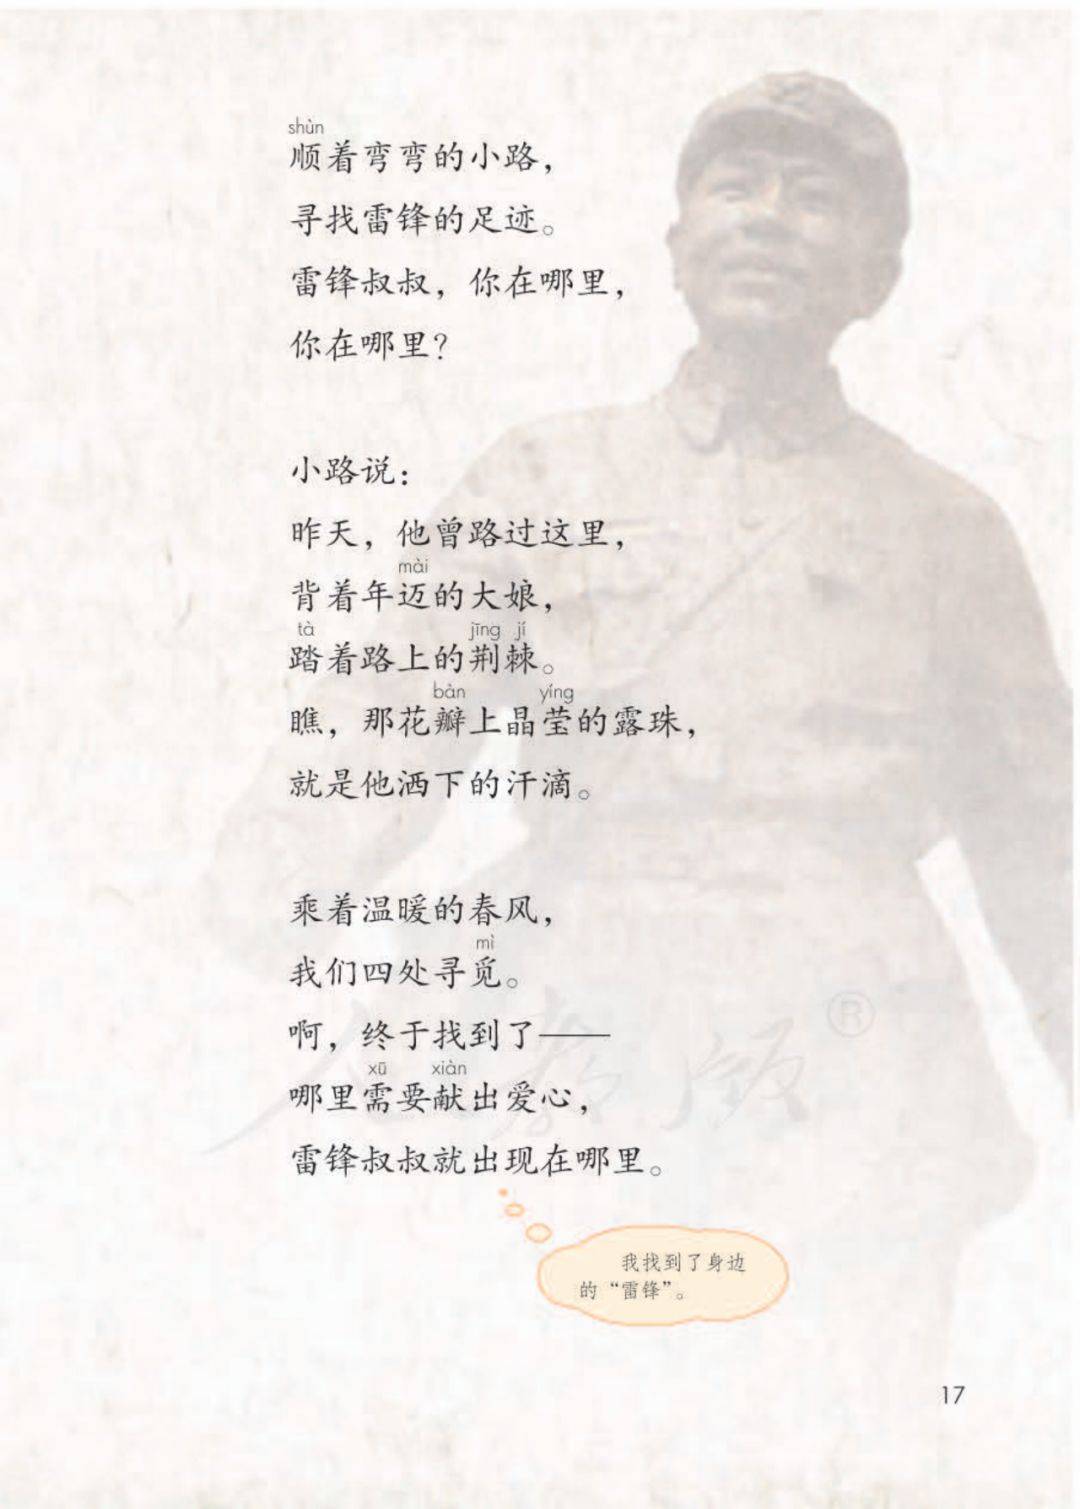 shùn
顺着弯弯的小路，
寻找雷锋的足迹。
雷锋叔叔，你在哪里，
你在哪里？
小路说：
昨天，他曾路过这里，
mài
背着年迈的大娘，
tà jīng jí
踏着路上的荆棘。
bàn yíng
瞧，那花瓣上晶莹的露珠，
就是他洒下的汗滴。
乘着温暖的春风，
mì
我们四处寻觅。
啊，终于找到了——
xū xiàn
哪里需要献出爱心，
雷锋叔叔就出现在哪里。
我找到了身边
的“雷锋”。
人教版®
17